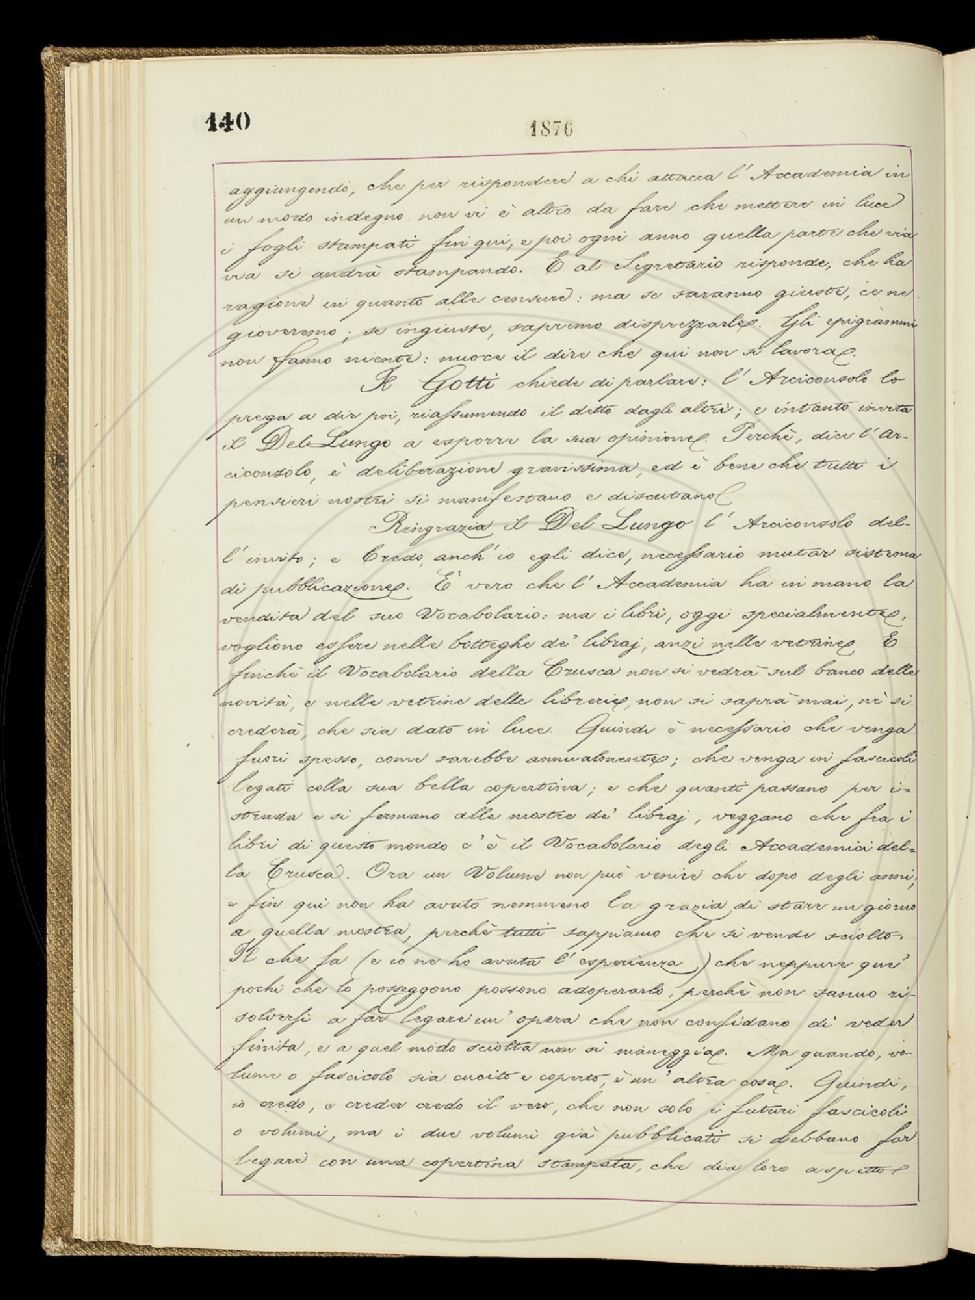 140
1876
aggiungendo, che per rispondere a chi attacca l' Accademia in
un modo indegno non vi è altro da fare che mettere in luce
i fogli stampati fin qui, e poi ogni anno quella parte che via
via si andrà stampando. E al Segretario risponde, che ha
ragione in quanto alle censure: ma se saranno giuste, ce ne
gioveremo; se ingiuste, sapremo disprezzarle. Gli epigrammi
non fanno niente: nuoce il dire che qui non si lavora.
Il Gotti chiede di parlare: l' Arciconsolo lo
prega a dir poi, riassumendo il detto dagli altri; e intanto invita
il Del Lungo a esporre la sua opinione. Perchè, dice l' Ar-
ciconsolo, è deliberazione gravissima, ed è bene che tutti i
pensieri nostri si manifestano e discutano.
Ringrazia il Del Lungo l' Arciconsolo del-
l' invito; e Credo, anch' io egli dice, necessario mutar sistema
di pubblicazione. È vero che l' Accademia ha in mano la
vendita del suo Vocabolario: ma i libri, oggi specialmente,
vogliono essere nelle botteghe de' libraj, anzi nelle vetrine. E
finchè il Vocabolario della Crusca non si vedrà sul banco delle
novità, e nelle vetrine delle librerie, non si saprà mai, nè si
crederà, che sia dato in luce. Quindi è necessario che venga
fuori spesso, come sarebbe annualmente; che venga in fascicoli
legati colla sua bella copertina; e che quanti passano per i-
strada e si fermano alle mostre de' libraj, veggano che fra i
libri di questo mondo c' è il Vocabolario degli Accademici del=
la Crusca. Ora un Volume non può venire che dopo degli anni;
e fin qui non ha avuto nemmeno la grazia di stare un giorno
a quella mostra, perchè tutti sappiamo che si vende sciolto.
Il che fa (e io ne ho avuta l' esperienza) che neppure que'
pochi che lo posseggono possono adoperarlo, perchè non sanno ri-
solversi a far legare un' opera che non confidano di veder
finita, e a quel modo sciolta non si maneggia. Ma quando, vo-
lume o fascicolo sia cucito e coperto, è un' altra cosa. Quindi,
io credo, e creder credo il vero, che non solo i futuri fascicoli
o volumi, ma i due volumi già pubblicati si debbano far
legare con una copertina stampata, che dia loro aspetto